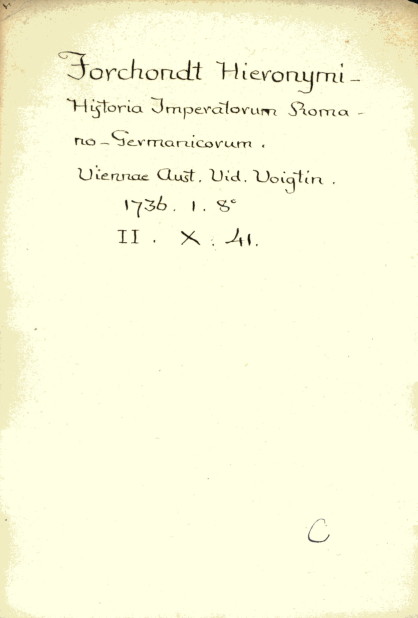 Forchondt Hieronymi-
Historia Imperatorum Roma-
no-Germanicorum.
Viennae Aust. Vid. Voigtin.
1736. 1. 8°
II. X. 41.
C